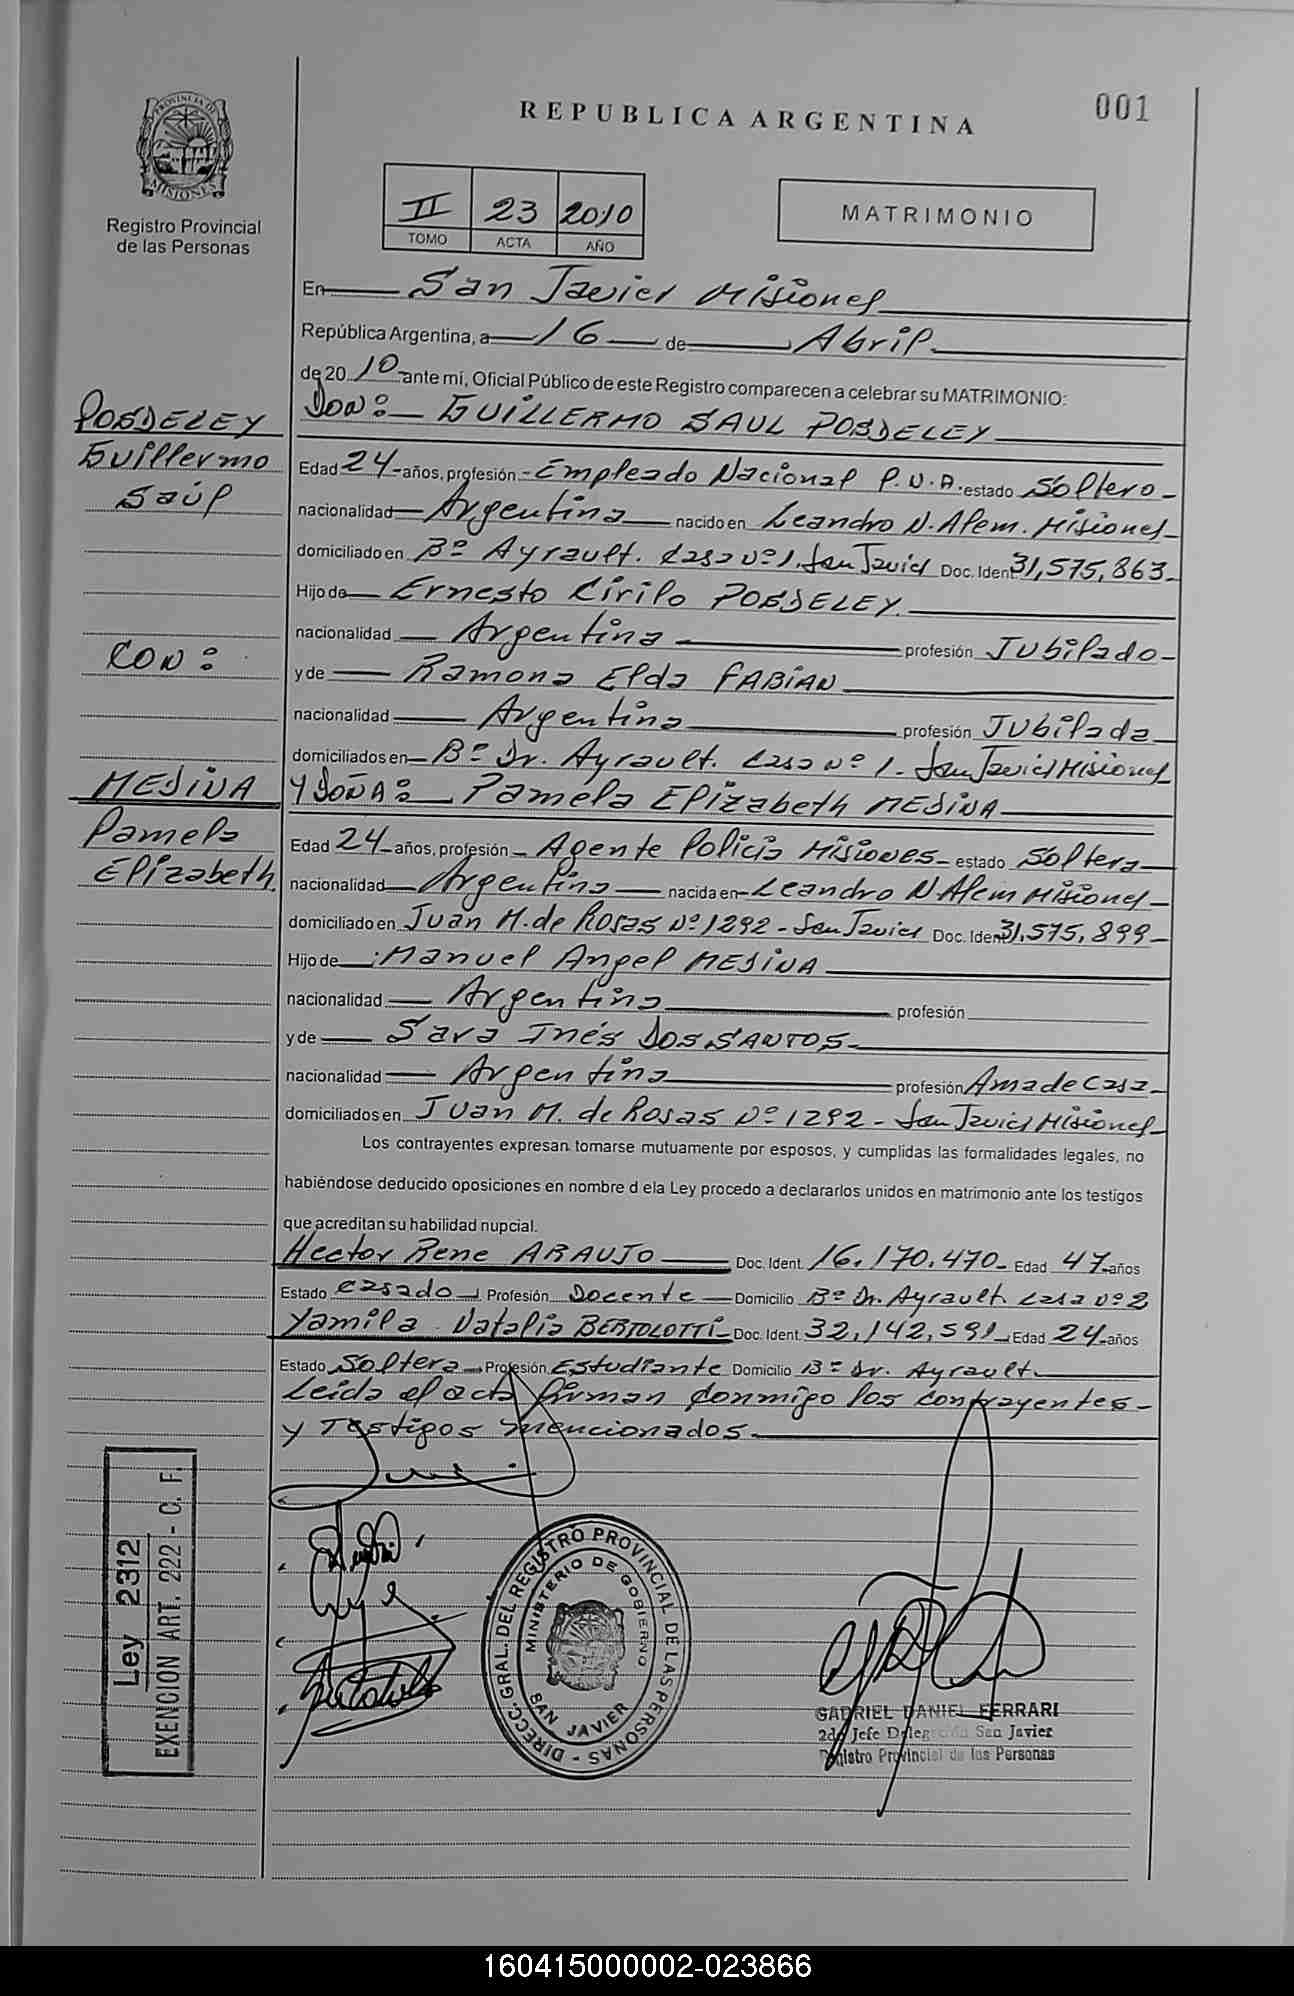 REPUBLICA ARGENTINA
001
PROVINCIA DE MISIONES
Registro Provincial
de las Personas
II 23 2010
TOMO ACTA AÑO
MATRIMONIO
En San Javier Misiones
República Argentina, a 16 de Abril
de 20 10 ante mí, Oficial Público de este Registro comparecen a celebrar su MATRIMONIO:
POSDELEY
Guillermo
Saúl
CON:
MEDINA
Pamela
Elizabeth.
DON: GUILLERMO SAUL POSDELEY
Edad 24 años, profesión Empleado Nacional P.N.A. estado Soltero
nacionalidad Argentina nacido en Leandro N. Alem. Misiones
domiciliado en Bº Ayrault. Casa Nº 1. San Javier Doc. Ident 31,575,863
Hijo de Ernesto Cirilo POSDELEY.
nacionalidad Argentina profesión Jubilado
y de Ramona Elda FABIAN
nacionalidad Argentina profesión Jubilada
domiciliados en Bº Dr. Ayrault. Casa Nº 1. San Javier Misiones
Y DOÑA: Pamela Elizabeth MEDINA
Edad 24 años, profesión Agente Policia Misiones estado Soltera
nacionalidad Argentina nacida en Leandro N Alem Misiones
domiciliado en Juan M. de Rosas Nº 1292 - San Javier Doc. Ident 31,575,899
Hijo de Manuel Angel MEDINA
nacionalidad Argentina profesión
y de Sara Inés DOS SANTOS
nacionalidad Argentina profesión Ama de Casa
domiciliados en Juan M. de Rosas Nº 1292 - San Javier Misiones
Los contrayentes expresan tomarse mutuamente por esposos, y cumplidas las formalidades legales, no
habiéndose deducido oposiciones en nombre d ela Ley procedo a declararlos unidos en matrimonio ante los testigos
que acreditan su habilidad nupcial.
Hector Rene ARAUJO Doc. Ident. 16.170.470 Edad 47 años
Estado Casado Profesión Docente Domicilio Bº Dr. Ayrault. Casa Nº 2
Yamila Natalia BERTOLOTTI Doc. Ident. 32,142,591 Edad 24 años
Estado Soltera Profesión Estudiante Domicilio Bº Dr. Ayrault.
Leida el acta firman conmigo los contrayentes
y Testigos mencionados.
Ley 2312
EXENCION ART. 222 - C. F.
DIRECC. GRAL. DEL REGISTRO PROVINCIAL DE LAS PERSONAS
MINISTERIO DE GOBIERNO
SAN JAVIER
GABRIEL DANIEL FERRARI
2do Jefe Delegación San Javier
Registro Provincial de las Personas
160415000002-023866